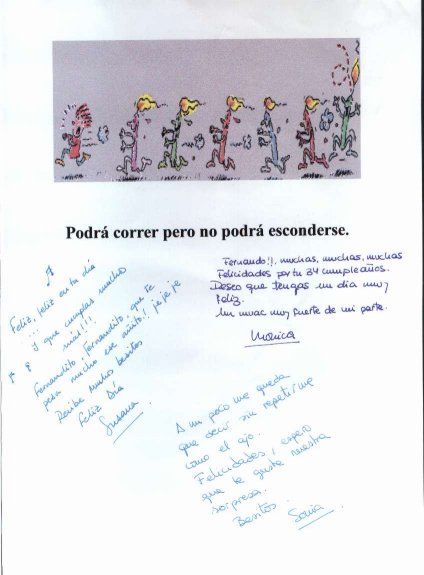 Podrá correr pero no podrá esconderse.
Fernando!!, muchas, muchas, muchas
Felicidades por tu 34 cumpleaños.
Deseo que tengas un dia muy
feliz.
Un muac muy fuerte de mi parte.
Monica
Feliz, feliz en tu día
y que cumplas mucho
más!!!
Fernandito, Fernandito, que te
pesa mucho ese culito! je je je
Recibe mucho besitos
Feliz Día
Susana
A mi poco me queda
que decir sin repetirme
como el ajo.
Felicidades, espero
que te guste nuestra
sorpresa.
Besitos.
Sonia